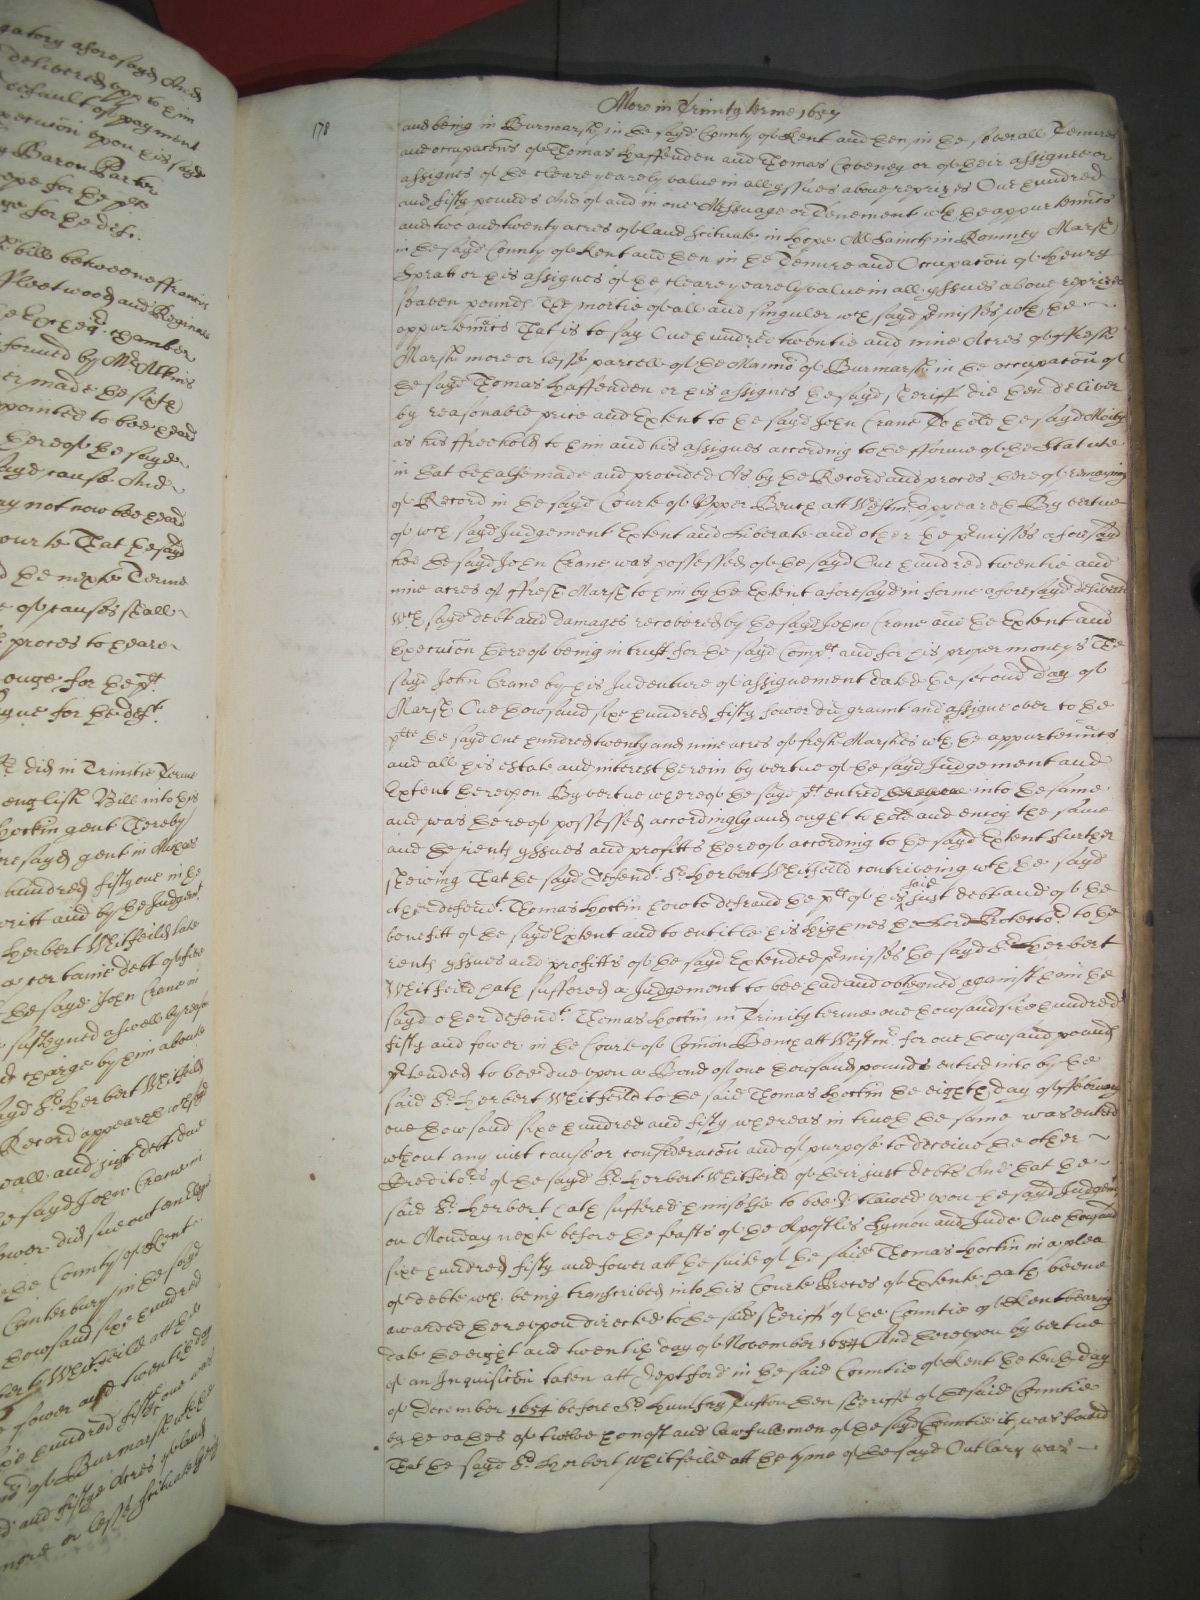 gatory aforesayd And
delivered upp to him
default of payment
execution upon his sayd
Baron Parker
for the
for the def.
bills betweene ffrancis
ffleetwood and Reginald
Excheqr. chamber
formed by Mr. Atkins
made the sixth
appointed to bee heard
thereof the sayde
sayd cause And
may not now bee heard
Courte That the sayd
the next Terme
of causes shall
proces to heare
for the plt
for the deft.
did in Trinitie Terme
english Bill into his
Hockin gent Thereby
aforesayd gent in Michas
hundred fifty one in the
writt and by the Judgemt
Herbert Whitfeild late
a certaine debt of five
the sayd John Crane in
susteyned aswell by reason
charge by him about
sayd Sr. Herbert Whitfeild
Record appeareth which
reall and just debt due
the sayd John Crane in
fower did sue out an elegit
the County of Kent
Canterbury in the sayd
thowsand sixe hundred
Herbert Whitfeild att the
fower and twentith day
sixe hundred fiftie one was
of Burmarsh with the
and fiftye Acres of land
more or lesse scituate lying
178
More in Trinity terme 1657
and being in Burmarsh in the sayd County of Kent and then in the severall Tenures
and occupacons of Thomas Haffenden and Thomas Coveney or of their assignee or
assignes of the cleare yearely value in all yssues above reprizes One hundred
and fifty pounds And of and in one Messuage or Tenement wth the appurtenncs
and two and twenty acres of land scituate in Hope All Saincts in Romney Marsh
in the sayd County of Kent and then in the Tenure and Occupacon of Henry
Spratt or his assignes of the cleare yearely value in all yssues above reprizes
seaven pounds The mortie of all and singuler wch sayd pmisses wth the
appurtenncs That is to say One hundred twentie and nine Acres of ffresh
Marsh more or lesse parcell of the Mannor of Burmarsh in the occupacon of
the sayd Thomas Haffenden or his assignes the sayd sheriff did then deliver
by reasonable price and Extent to the sayd John Crane To hold the sayd Moity
as his ffreehold to him and his assignes according to the fforme of the Statute
in that behalfe made and provided As by the Record and proces thereof remayning
of Record in the sayd Courte of Upper Bench att Westmr appeareth By vertue
of wch sayd Judgement Extent and Liberate and other the pmisses aforesayd
hee the sayd John Crane was possessed of the sayd One hundred twentie and
nine acres of ffresh Marsh to him by the Extent aforesayd in forme aforesayd delivered
Wch sayd debt and damages recovered by the sayd John Crane and the Extent and
Execucon thereof being in trust for the sayd Complt and for his proper moneys The
sayd John Crane by his Indenture of assignement dated the second day of
Marsh One thowsand sixe hundred fifty fower did graunt and assigne over to the
plte the sayd one hundred twenty and nine acres of fresh Marshes wth the appurtenncs
and all his estate and interest therein by vertue of the sayd Judgement and
Extent thereupon By vertue whereof the sayd plt entred into the same
and was thereof possessed accordingly and ought to hold and enjoy the same
and the rents yssues and profitts thereof according to the sayd Extent further
shewing That the sayd Defendt Sr. Herbert Whitfeild contriveing wth the sayd
other defendt. Thomas Hockin how to defraud the plt of his said just debt and of the
benefitt of the sayd Extent and to entitle his Highnes the Lord Protector to the
rents yssues and profitts of the sayd Extended pmisses the sayd Sr. Herbert
Whitfeild hath suffered a Judgement to bee had and obteyned against him the
sayd other defendt. Thomas Hockin in Trinity terme one thowsand sixe hundred
fifty and fower in the Courte of Comon Bench att Westmr. for one thowsand pounds
ptended to bee due upon a Bond of one thowsand pounds entred into by the
said Sr. Herbert Whitfeild to the said Thomas Hockin the eighth day of ffebruary
one thowsand sixe hundred and fifty whereas in trueth the same was entred
wthout any just cause or consideracon and of purpose to deceive the other
Creditors of the sayd Sr. Herbert Whitfeild of their just debts And that the
said Sr. Herbert hath suffered himselfe to bee outlawed upon the sayd Judgemt
on Monday next before the feaste of the Apostles Symon and Jude One thowsand
sixe hundred fifty and fower att the suite of the said Thomas Hockin in a plea
of debte wch being transcribed into this Courte Proces of Extente hath beene
awarded thereupon directed to the said Sheriff of the Countie of Kent bearing
date the eight and twentith day of November 1654 And thereupon by vertue
of an Inquisicon taken att Deptford in the said Countie of Kent the tenth day
of December 1654 before Sr. Humfry Tufton then sheriffe of the said Countie
by the oathes of twelve honest and lawfull men of the sayd Countie it was found
That the sayd Sr. Herbert Whitfeild att the tyme of the sayd Outlary was